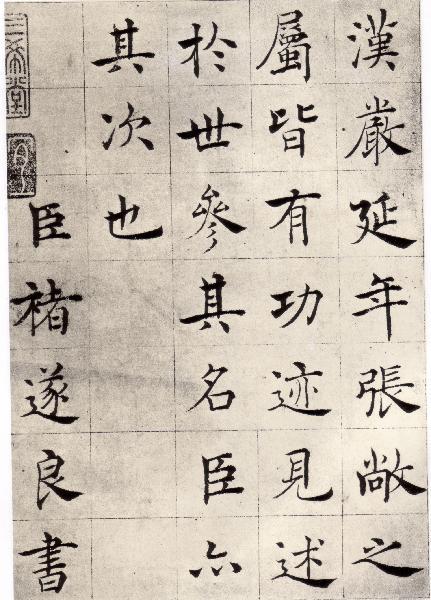 漢嚴延年張敞之
屬皆有功迹見述
於世參其名臣亦
其次也
臣褚遂良書
三希堂